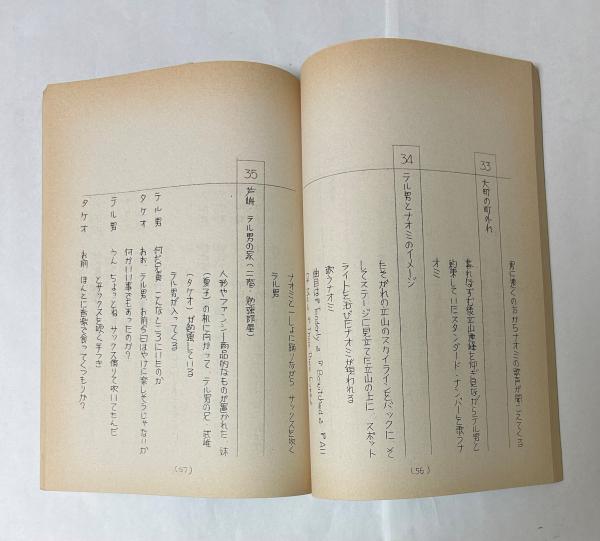 更に遠くの方からナオミの歌声が聞こえてくる
33
大町の町外れ
暮れなずむ後立山連峰を何ぎ見ながらテル男と
約束していたスタンダード・ナンバーを歌うナ
オミ
34
テル男とナオミのイメージ
たそがれの立山のスカイラインをバックに、そ
してステージに見立てた立山の上に、スポット
ライトを浴びたナオミが現われる
歌うナオミ
曲目は
(56)
ナオミと一しょに踊りながら サックスを吹く
テル男
35
芦峅 テル男の家(二階・勉強部屋)
人形やファンシー商品的なものが置かれた、妹
(夏子)の机に向かって、テル男の兄、武雄
(タケオ)が勉強している
テル男が入ってくる
テル男 何だ兄貴、こんなところにいたのか
タケオ おお、テル男、お前今日はやけに楽しそうじゃないか
何かいい事でもあったのか?
テル男 うん、ちょっとね、サックス借りて吹いてもんだ
とサックスを吹く手つき
タケオ お前、ほんとに音楽で食ってくつもりか?
(57)